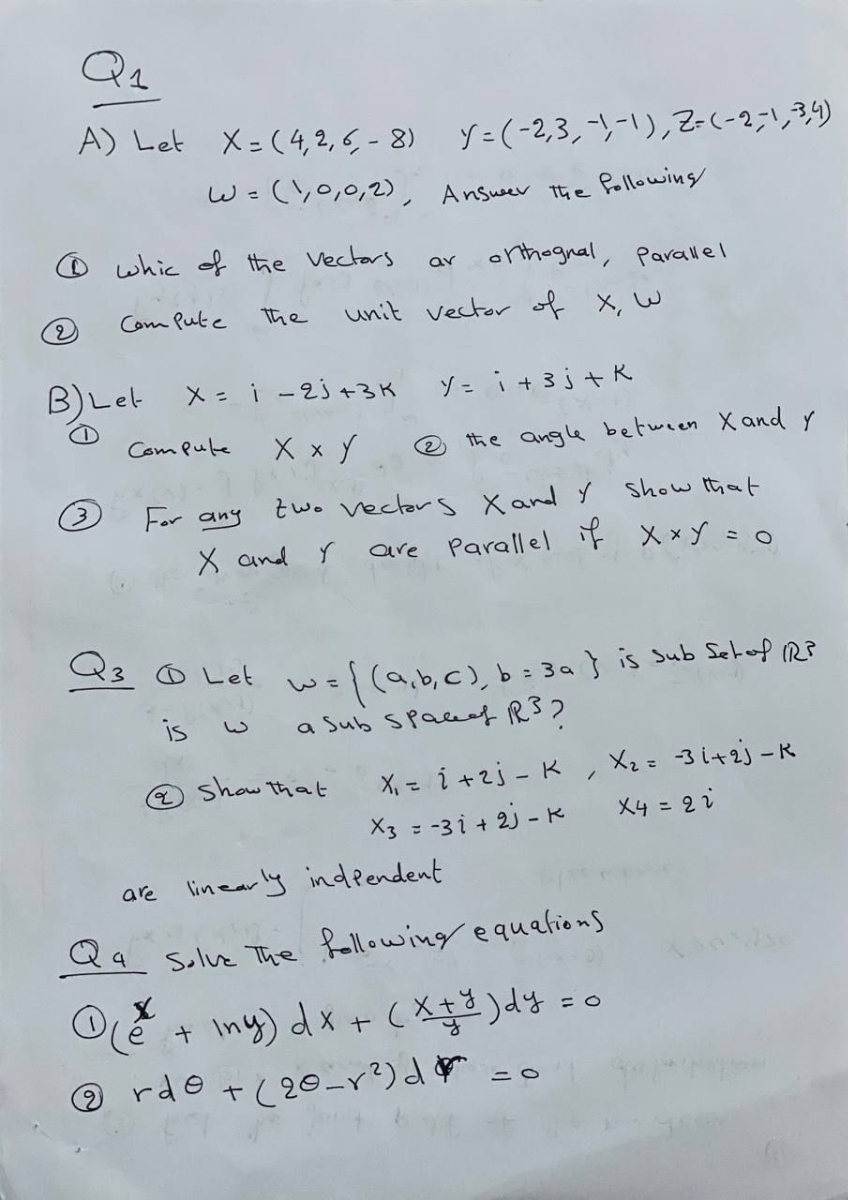 Q1
A) Let X = (4, 2, 6, - 8) Y = (-2, 3, -1, -1), Z = (-2, -1, -3, 4)
W = (1, 0, 0, 2), Answer the following
① whic of the vectors ar orthognal, parallel
② Compute the unit vector of X, W
B) Let X = i - 2j + 3K Y = i + 3j + K
① Compute X x Y ② the angle between X and Y
③ For any two vectors X and Y show that
X and Y are parallel if X x Y = 0
Q3 ① Let w = { (a, b, c), b = 3a } is sub set of ℝ³
is w a sub space of ℝ³ ?
② Show that X₁ = i + 2j - K , X₂ = -3i + 2j - K
X₃ = -3i + 2j - K X4 = 2i
are linearly indpendent
Q4 Solve The following equations
① (eˣ + lny) dx + (x+y/y) dy = 0
② rdθ + (2θ - r²) dr = 0